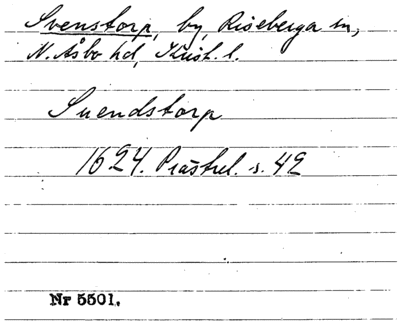 Svenstorp, by, Riseberga sn,
N. Åsbo hd, Krist. l.
Suendstorp
1624. Prästrel. s. 42
Nr 5501.